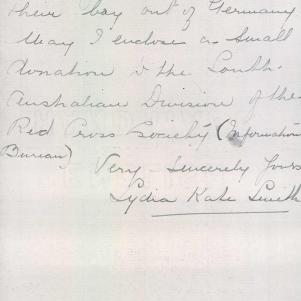 their boy out of Germany
May I enclose a small
donation to the South-
Australian Division of the
Red Cross Society (Information
Bureau)
Very Sincerely Yours
Lydia Kate Smith